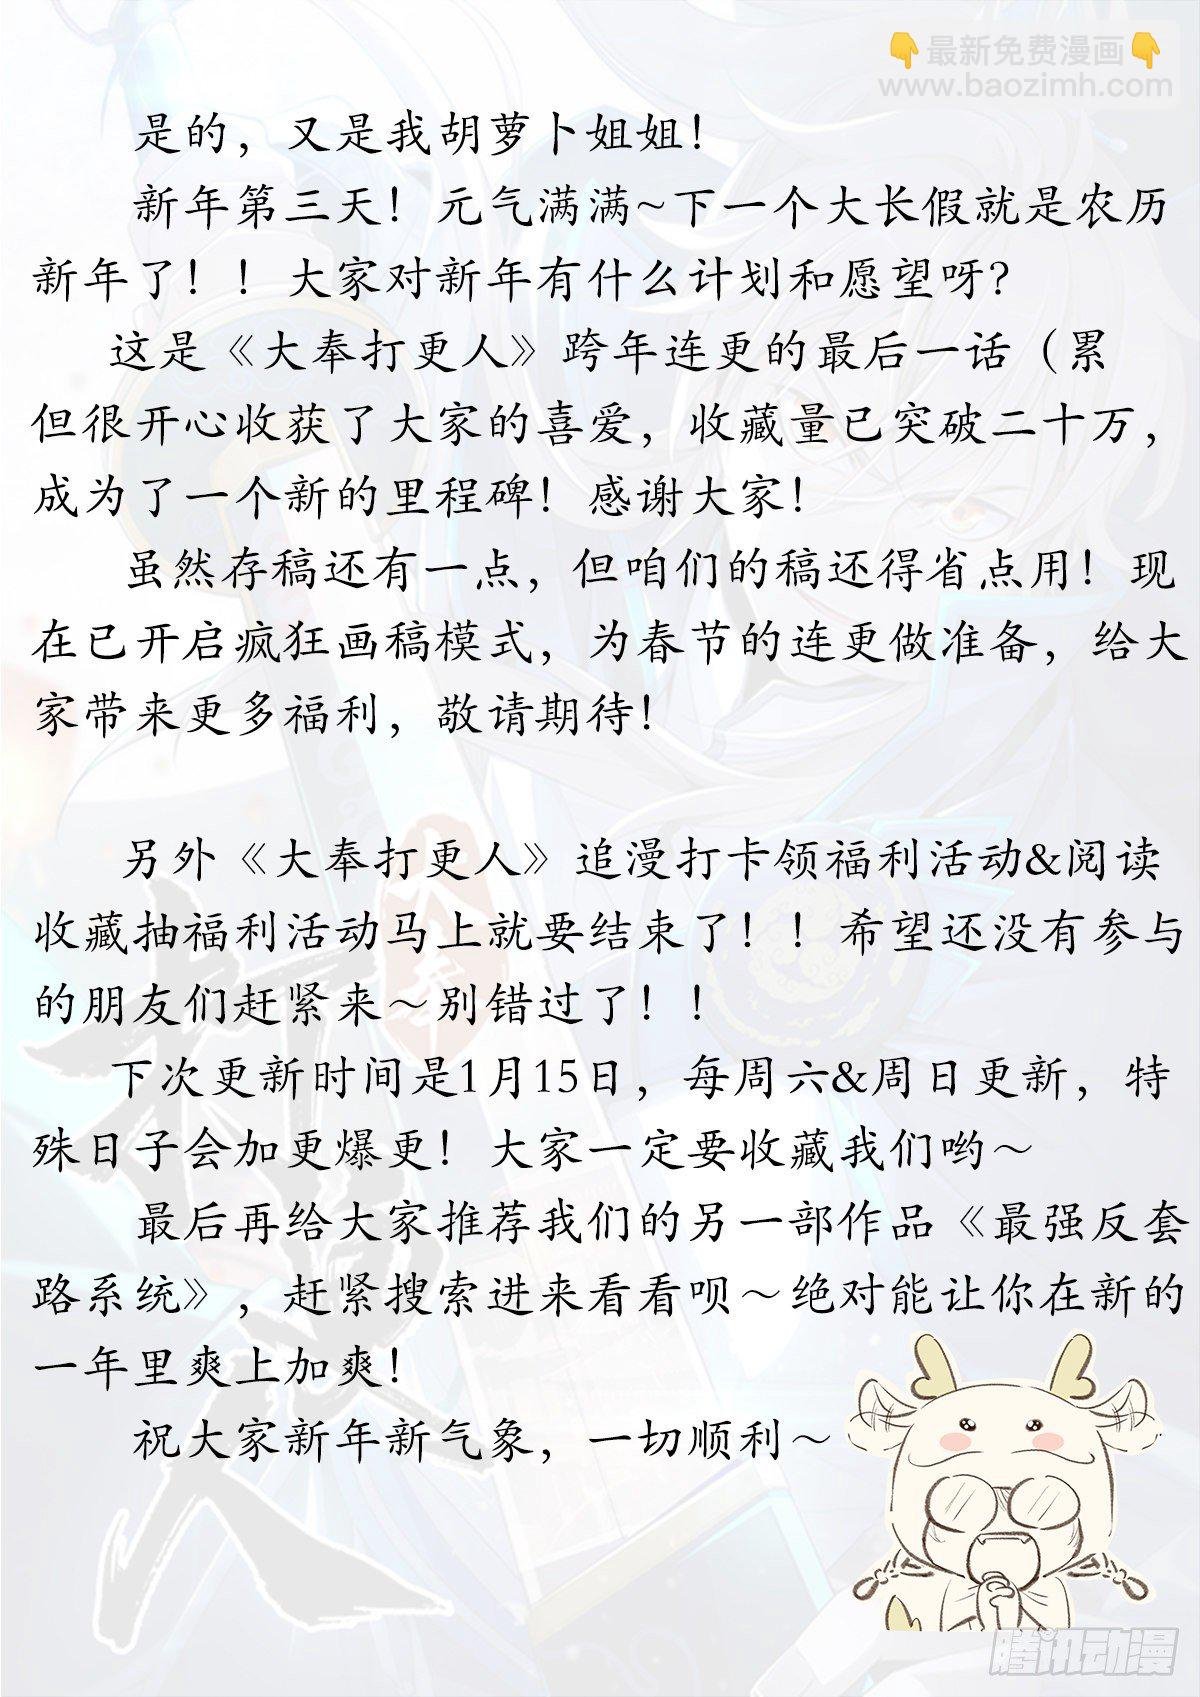 👇最新免费漫画👇
www.baozimh.com
是的，又是我胡萝卜姐姐！
新年第三天！元气满满~下一个大长假就是农历
新年了！！大家对新年有什么计划和愿望呀?
这是《大奉打更人》跨年连更的最后一话（累
但很开心收获了大家的喜爱，收藏量已突破二十万，
成为了一个新的里程碑！感谢大家！
虽然存稿还有一点，但咱们的稿还得省点用！现
在已开启疯狂画稿模式，为春节的连更做准备，给大
家带来更多福利，敬请期待！
另外《大奉打更人》追漫打卡领福利活动&阅读
收藏抽福利活动马上就要结束了！！希望还没有参与
的朋友们赶紧来～别错过了！！
下次更新时间是1月15日，每周六&周日更新，特
殊日子会加更爆更！大家一定要收藏我们哟～
最后再给大家推荐我们的另一部作品《最强反套
路系统》，赶紧搜索进来看看呗～绝对能让你在新的
一年里爽上加爽！
祝大家新年新气象，一切顺利～
大奉
打更人
腾讯动漫